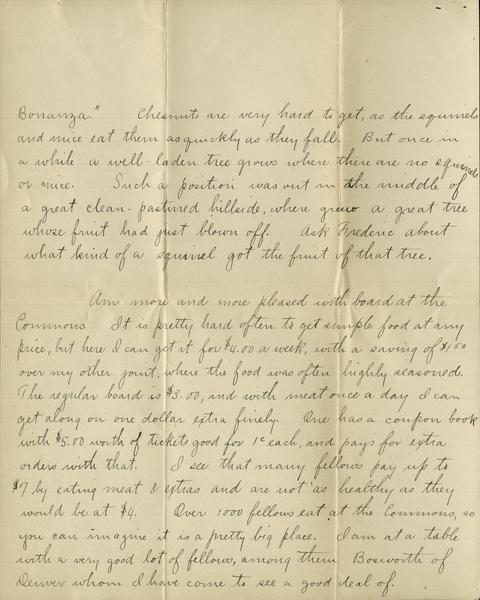 Bonanza." Chesnuts are very hard to get, as the squirrels
and mice eat them as quickly as they fall. But once in
a while a well-laden tree grows where there are no squirrels
or mice. Such a position was out in the middle of
a great clean-pastured hillside, where grew a great tree
whose fruit had just blown off. Ask Frederic about
what kind of a squirrel got the fruit of that tree.
Am more and more pleased with board at the
Commons It is pretty hard often to get simple food at any
price, but here I can get it for $4.00 a week, with a saving of $1.50
over my other joint, where the food was often highly seasoned.
The regular board is $3.00, and with meat once a day I can
get along on one dollar extra finely. One has a coupon book
with $5.00 worth of tickets good for 1c each, and pays for extra
orders with that. I see that many fellows pay up to
$7 by eating meat & extras and are not as healthy as they
would be at $4. Over 1000 fellows eat at the Commons, so
you can imagine it is a pretty big place. I am at a table
with a very good lot of fellows, among them Bosworth of
Denver whom I have come to see a good deal of.